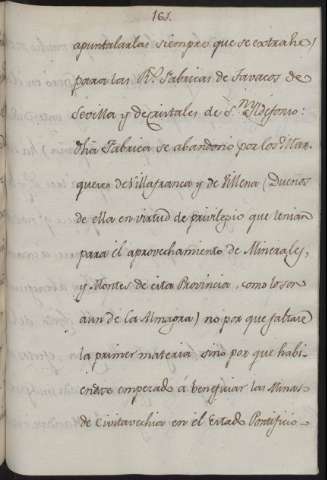 165.
apuntalarlas siempre que se extrahe
para las Rs. Fabricas de Tavacos de
Sevilla y de cristales de Sn. Yldefonso:
dha Fabrica se abandonó por los Mar-
queses de Villafranca y de Villena (Dueños
de ella en virtud de privilegio que tenian
para el aprovechamiento de Minerales,
y Montes de esta Provincia, como lo son
aun de la Almagra) no por que faltare
la primer materia sino por que habi-
endose empezado á beneficiar las Minas
de Civitavechia en el Estado Pontificio